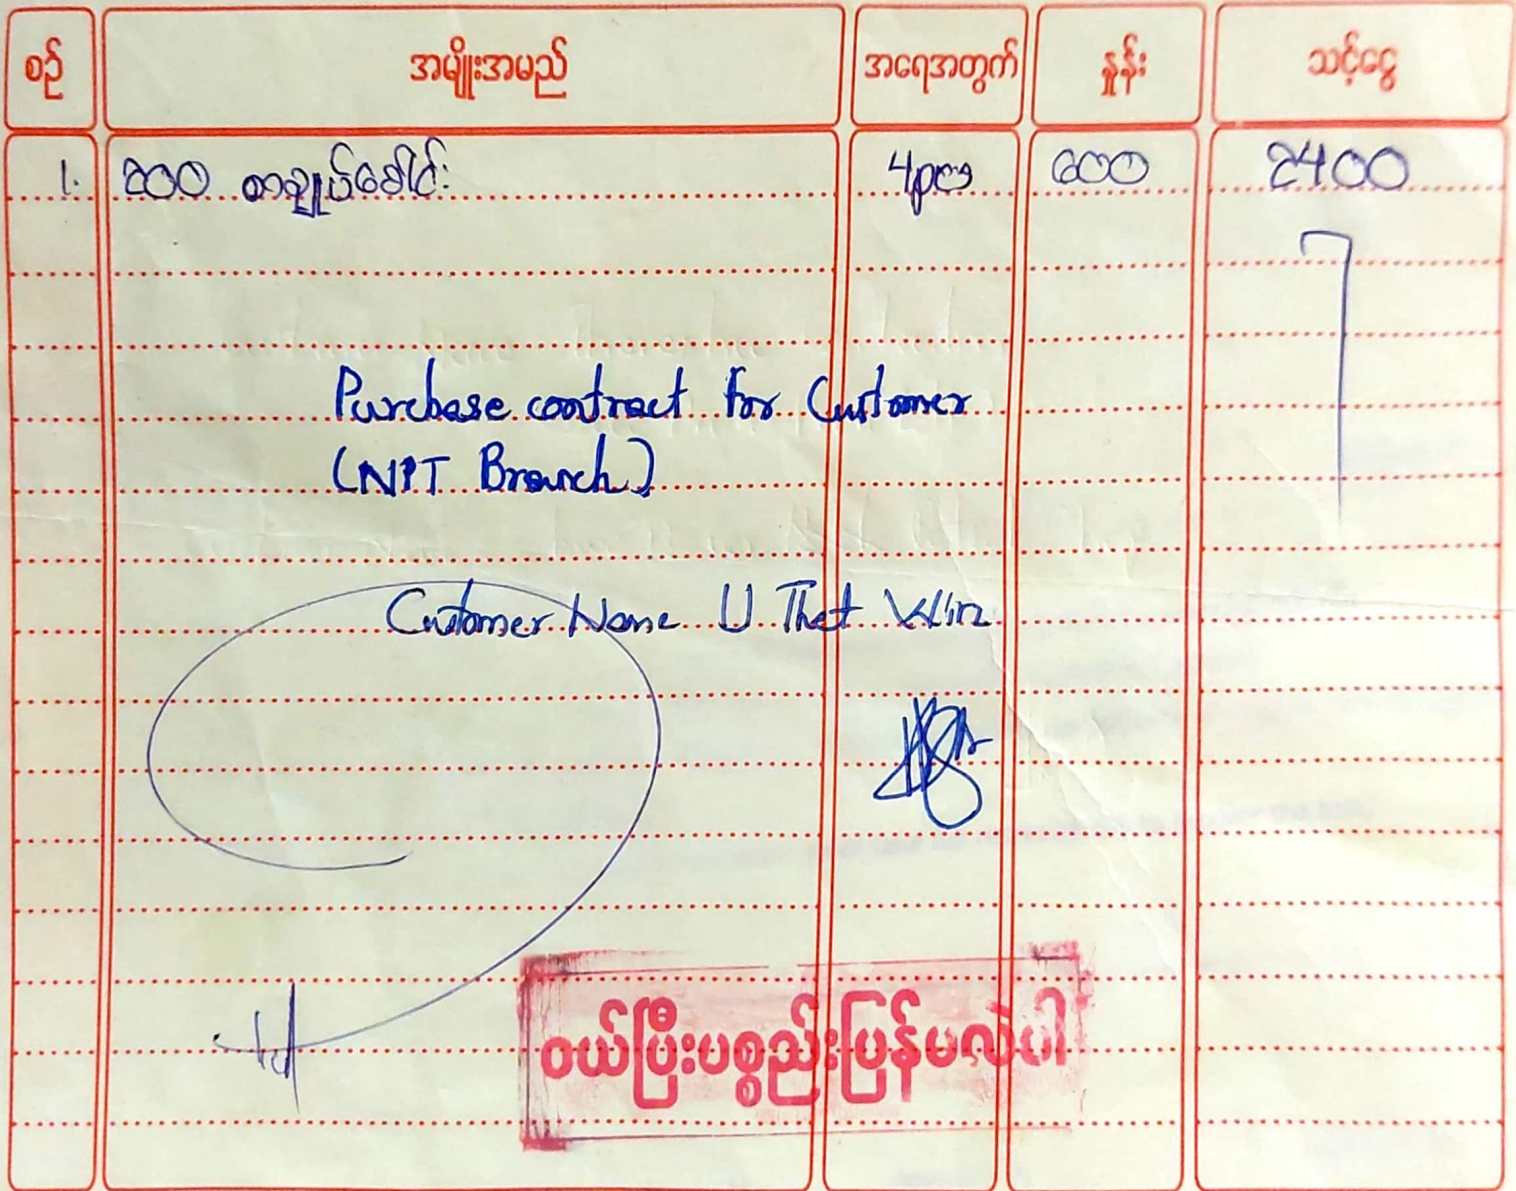 စဉ် အမျိုးအမည် အရေအတွက် နှုန်း သင့်ငွေ
1. ၃၀၀ စာချုပ်ခေါင်း 4pcs 600 2400
Purchase contract for Customer
(NPT Branch)
Customer Name U Thet Win
ဝယ်ပြီးပစ္စည်းပြန်မလဲပါ